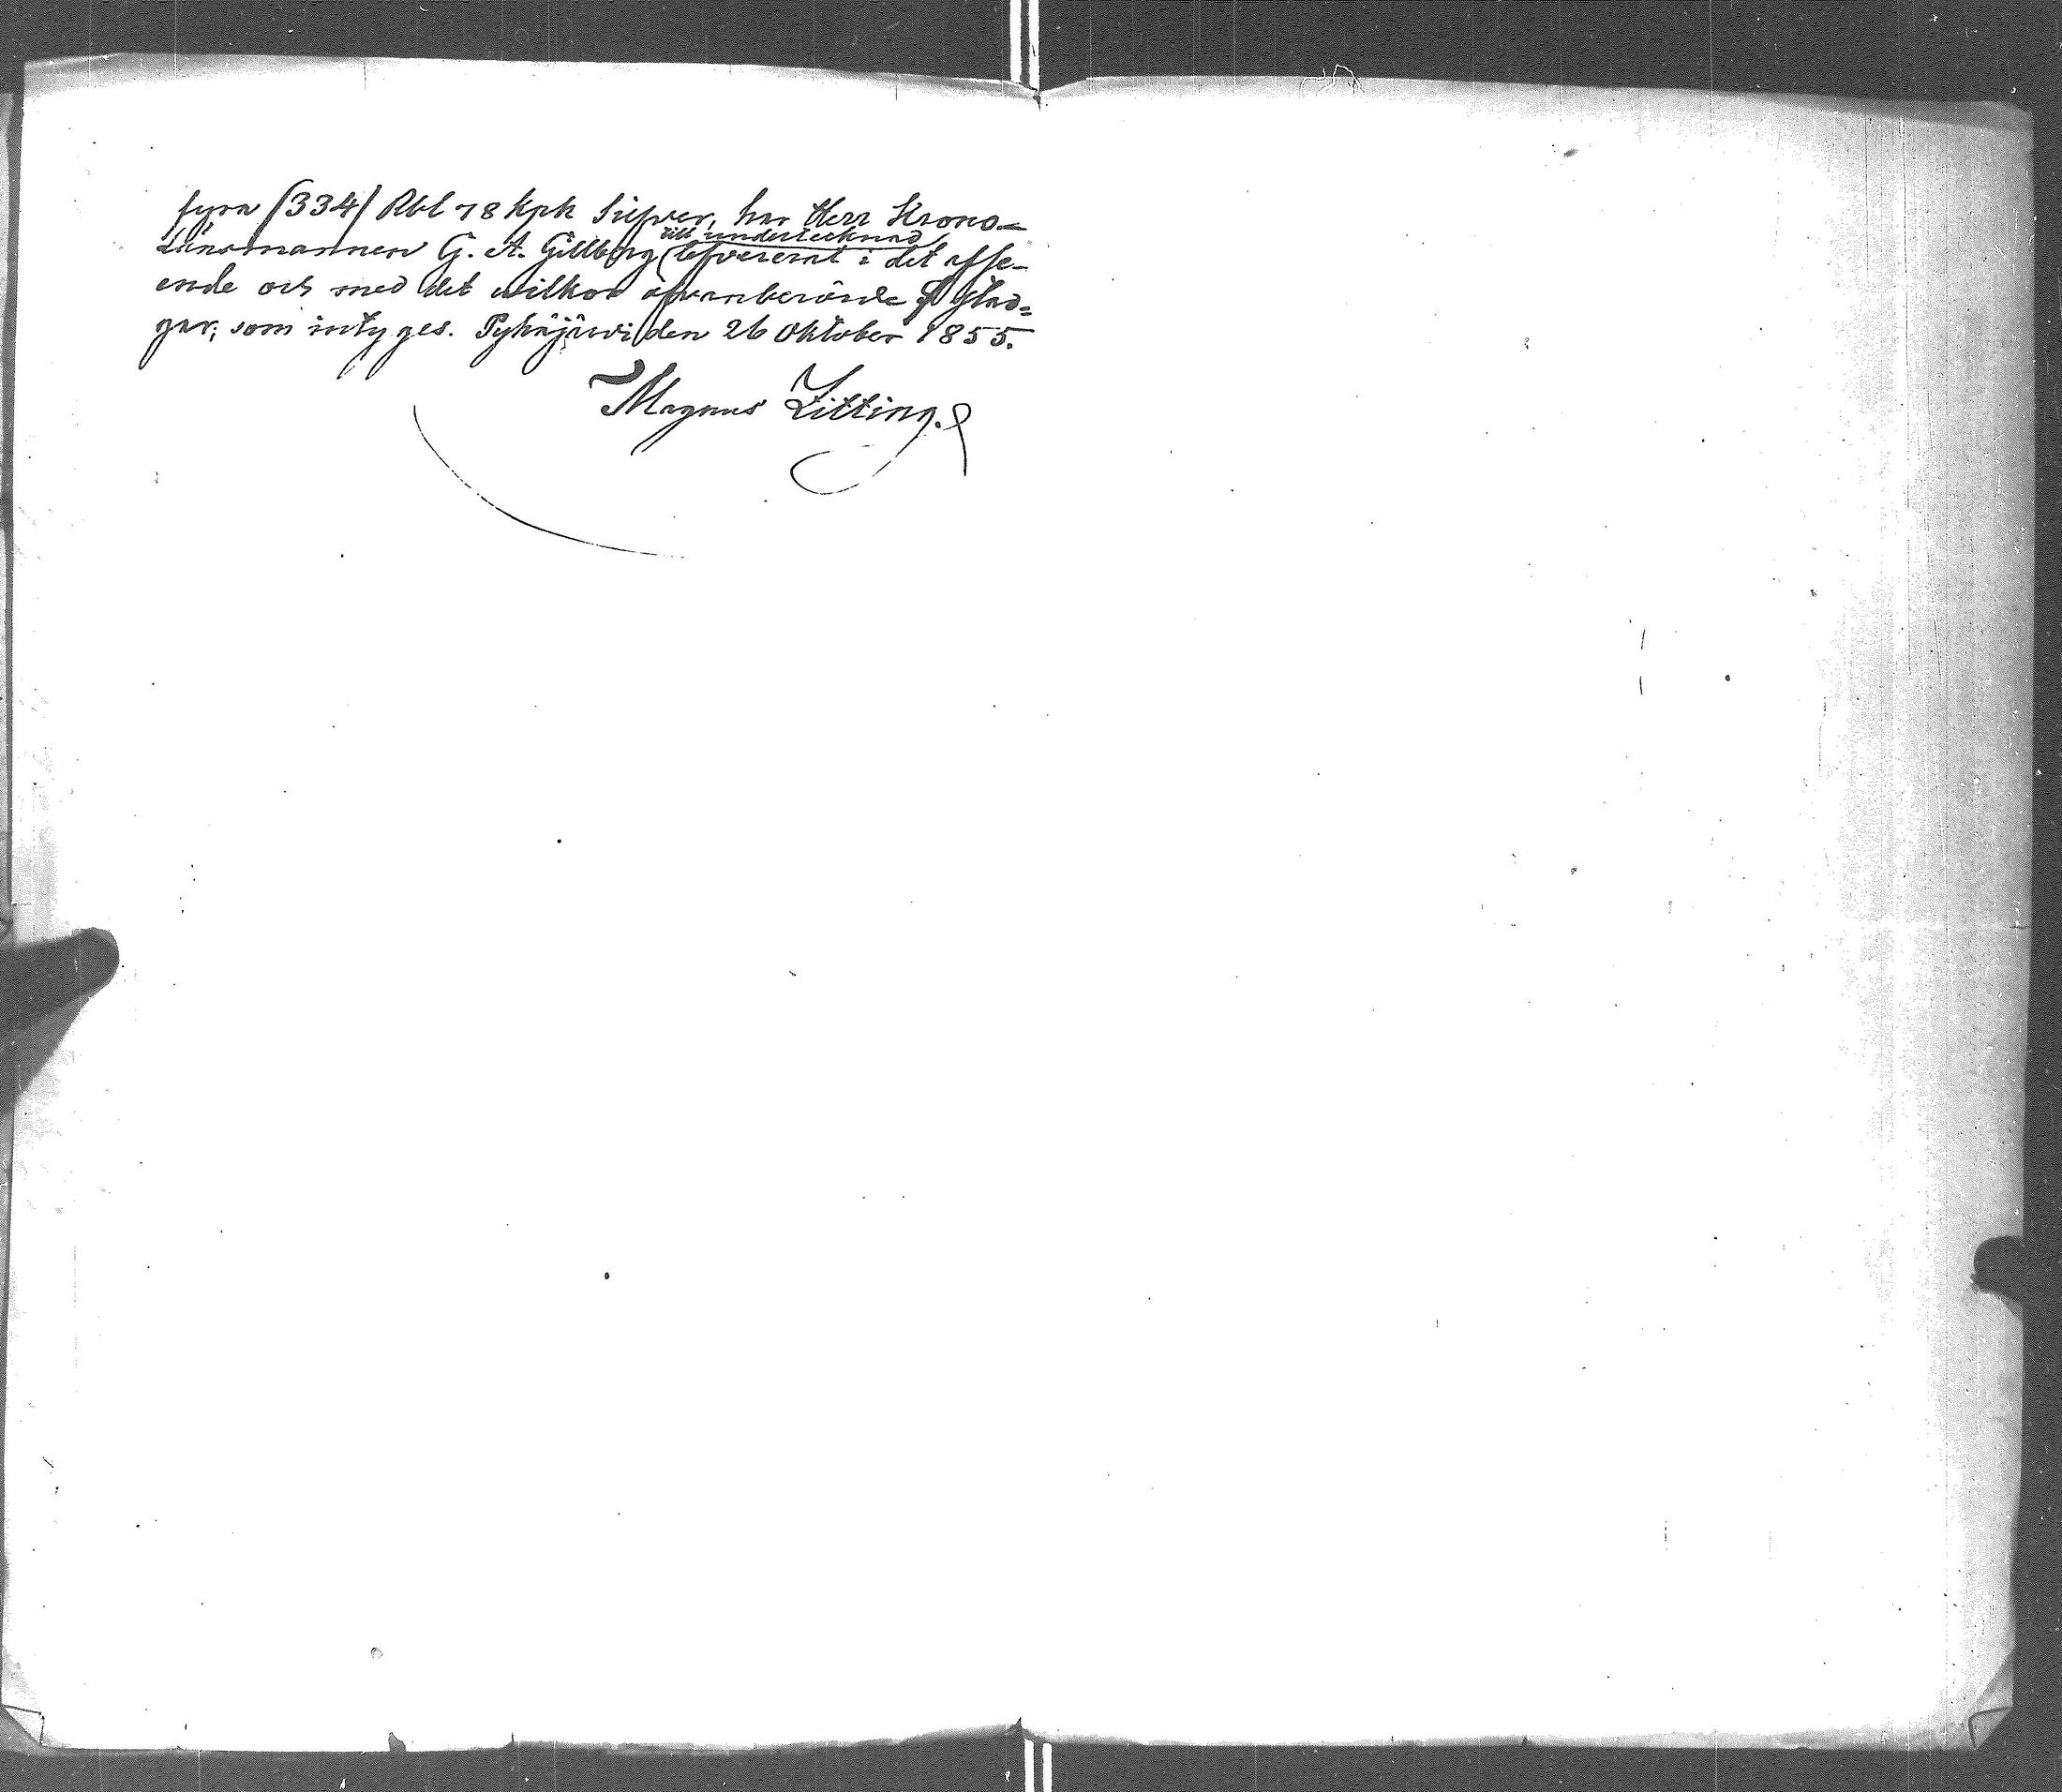 fyra (334) Rbl 78 kpk Silfver, har Herr Krono-
Länsmannen G. A. Gillberg till undertecknad lefvererat i det afse-
ende och med det wilkor ofvanberörde § stad-
gar; som intyges. Pyhäjärvi den 26 Oktober 1855.
Magnus Zitting.